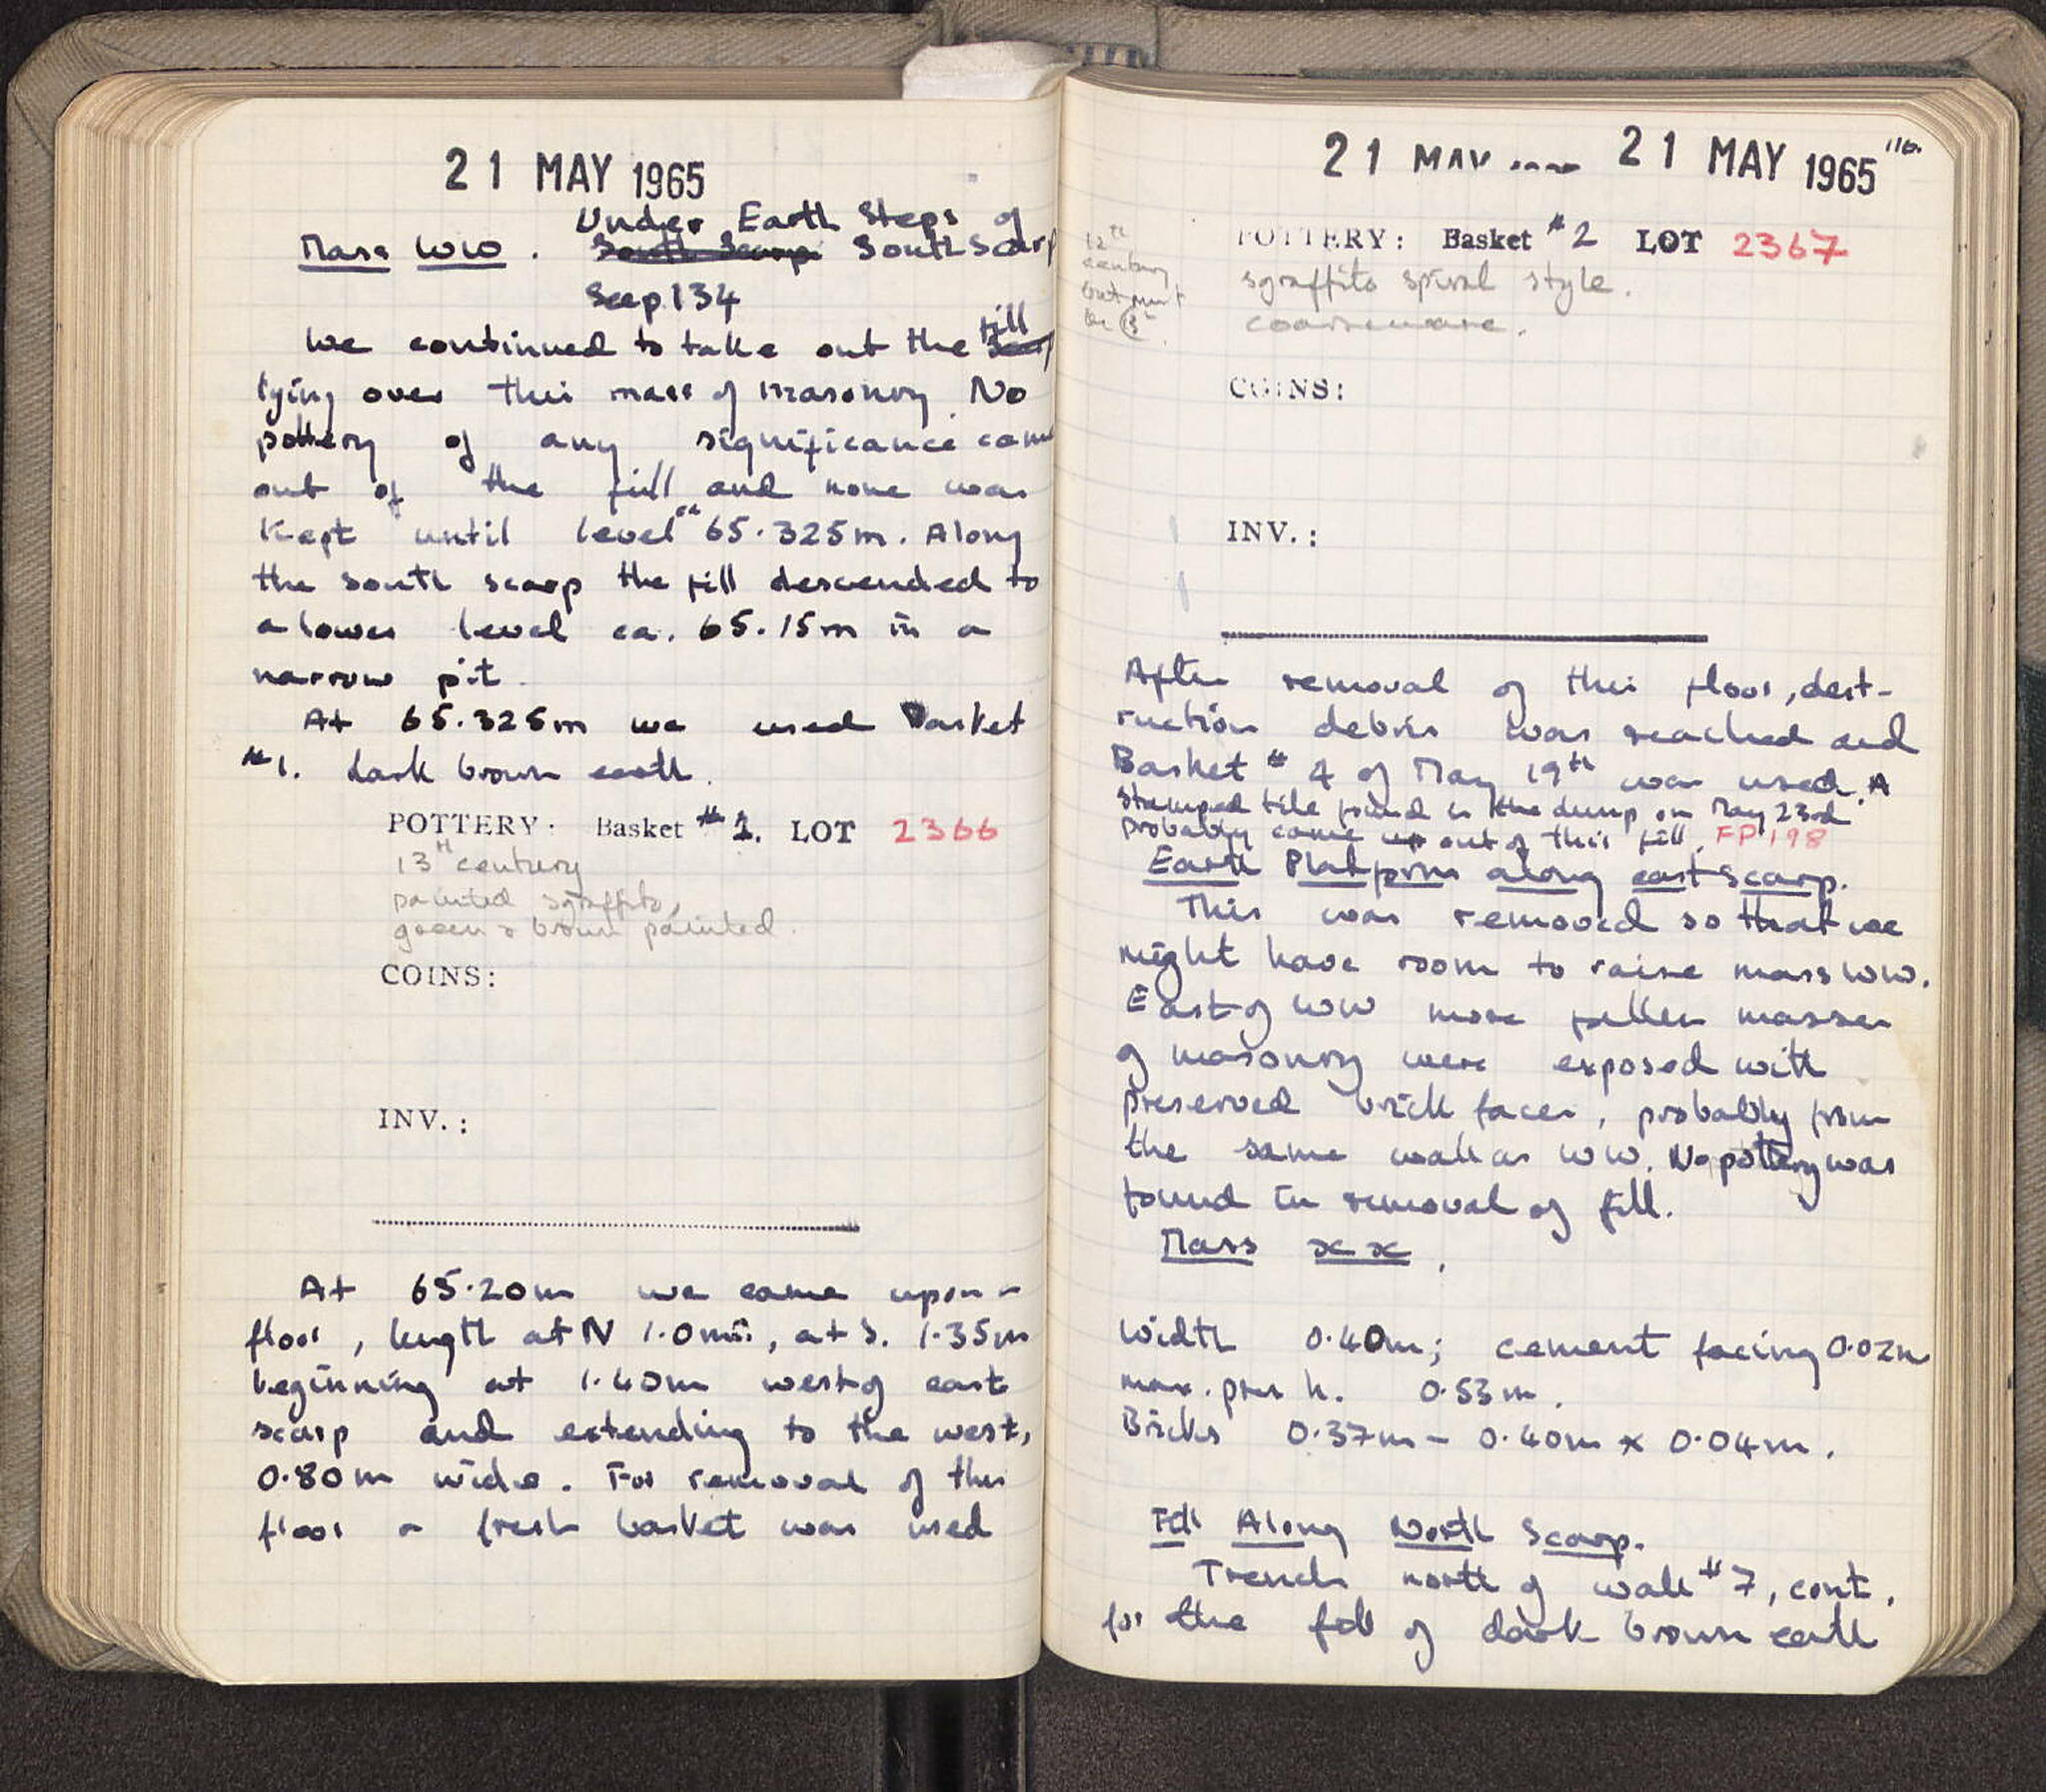 21 MAY 1965
Under Earth Steps of
Mass WW. South Scarp South Scarp
See p. 134
We continued to take out the fill
lying over this mass of masonry. No
pottery of any significance came
out of the fill and none was
kept until level 65.325m. Along
the south scarp the fill descended to
a lower level ca. 65.15m in a
narrow pit.
At 65.325m we used Basket
#1. dark brown earth.
POTTERY: Basket #1. LOT 2366
13th century
painted sgraffito,
green & brown painted.
COINS:
INV.:
At 65.20m we came upon a
floor, length at N 1.0m, at S. 1.35m
beginning at 1.40m west of east
scarp and extending to the west,
0.80m wide. For removal of this
floor a fresh basket was used
21 MAY 21 MAY 1965 116.
POTTERY: Basket #2 LOT 2367
12th
century
but not
the 13th
sgraffito spiral style.
coarseware.
COINS:
INV.:
After removal of this floor, dest-
ruction debris was reached and
Basket #4 of May 19th was used. A
stamped tile found in the dump on May 23rd
probably came up out of this fill. FP 198
Earth Platform along east scarp.
This was removed so that we
might have room to raise mass WW.
East of WW more fallen masses
of masonry were exposed with
preserved brick faces, probably from
the same wall as WW. No pottery was
found in removal of fill.
Mass xx.
Width 0.40m; cement facing 0.02m
max. pres h. 0.53m.
Bricks 0.37m - 0.40m x 0.04m.
Fill Along North Scarp.
Trench north of wall #7, cont.
for the fill of dark brown earth